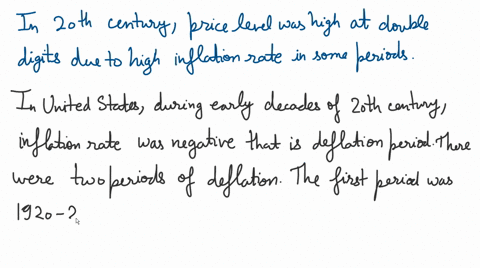 In 20th century, price level was high at double
digits due to high inflation rate in some periods.
In United States, during early decades of 20th century,
inflation rate was negative that is deflation period. There
were two periods of deflation. The first period was
1920-2